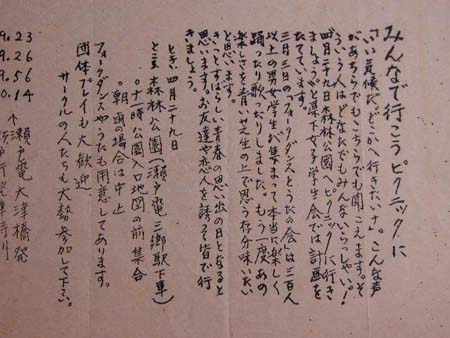 みんなで行こうピクニックに
「いい気候だ、どこかへ行きたいナ」。こんな声
があちらでもこちらでも聞こえます。そ
ういう人はどなたでもみんないらっしゃい!
四月二十九日森林公園へピクニックに行き
ましょうがと県下女子学生会では計画を
たてています。
三月三日の「フォークダンスとうたの会」は三百人
以上の男女学生が集まって本当に楽しく
踊ったり歌ったりしました。もう一度あの
楽しさを青い芝生の上で思う存分味いたい
と思います。
きっとすばらしい青春の思い出の日となると
思います。お友達や恋人を誘って皆で行
きましょう。
とき、四月二十九日
ところ 森林公園(瀬戸電三郷駅下車)
○十一時公園入口地図の前集合
○朝雨の場合は中止
フォークダンスやうたも用意してあります。
団体プレイも大歓迎、
サークルの人たちも大勢参加して下さい。
瀬戸電大津橋発
9.23
9.26
9.56
0.14